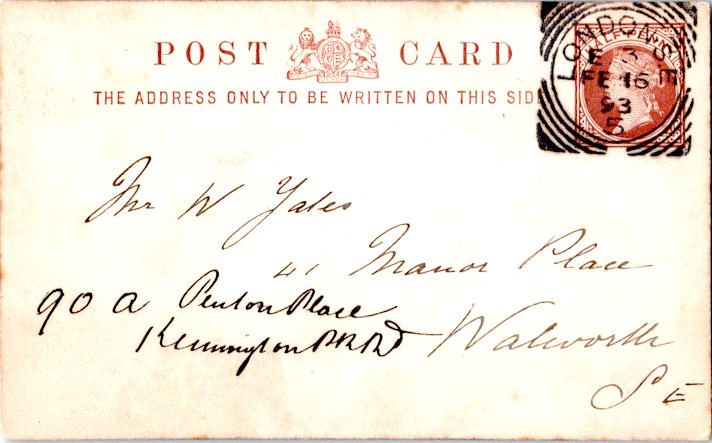 POST CARD
THE ADDRESS ONLY TO BE WRITTEN ON THIS SIDE
LONDON.S.E
E 3
FE 16
93
5
Mr W Yates
41 Manor Place
90 a Penton Place
Kennington Pk Rd
Walworth
S E